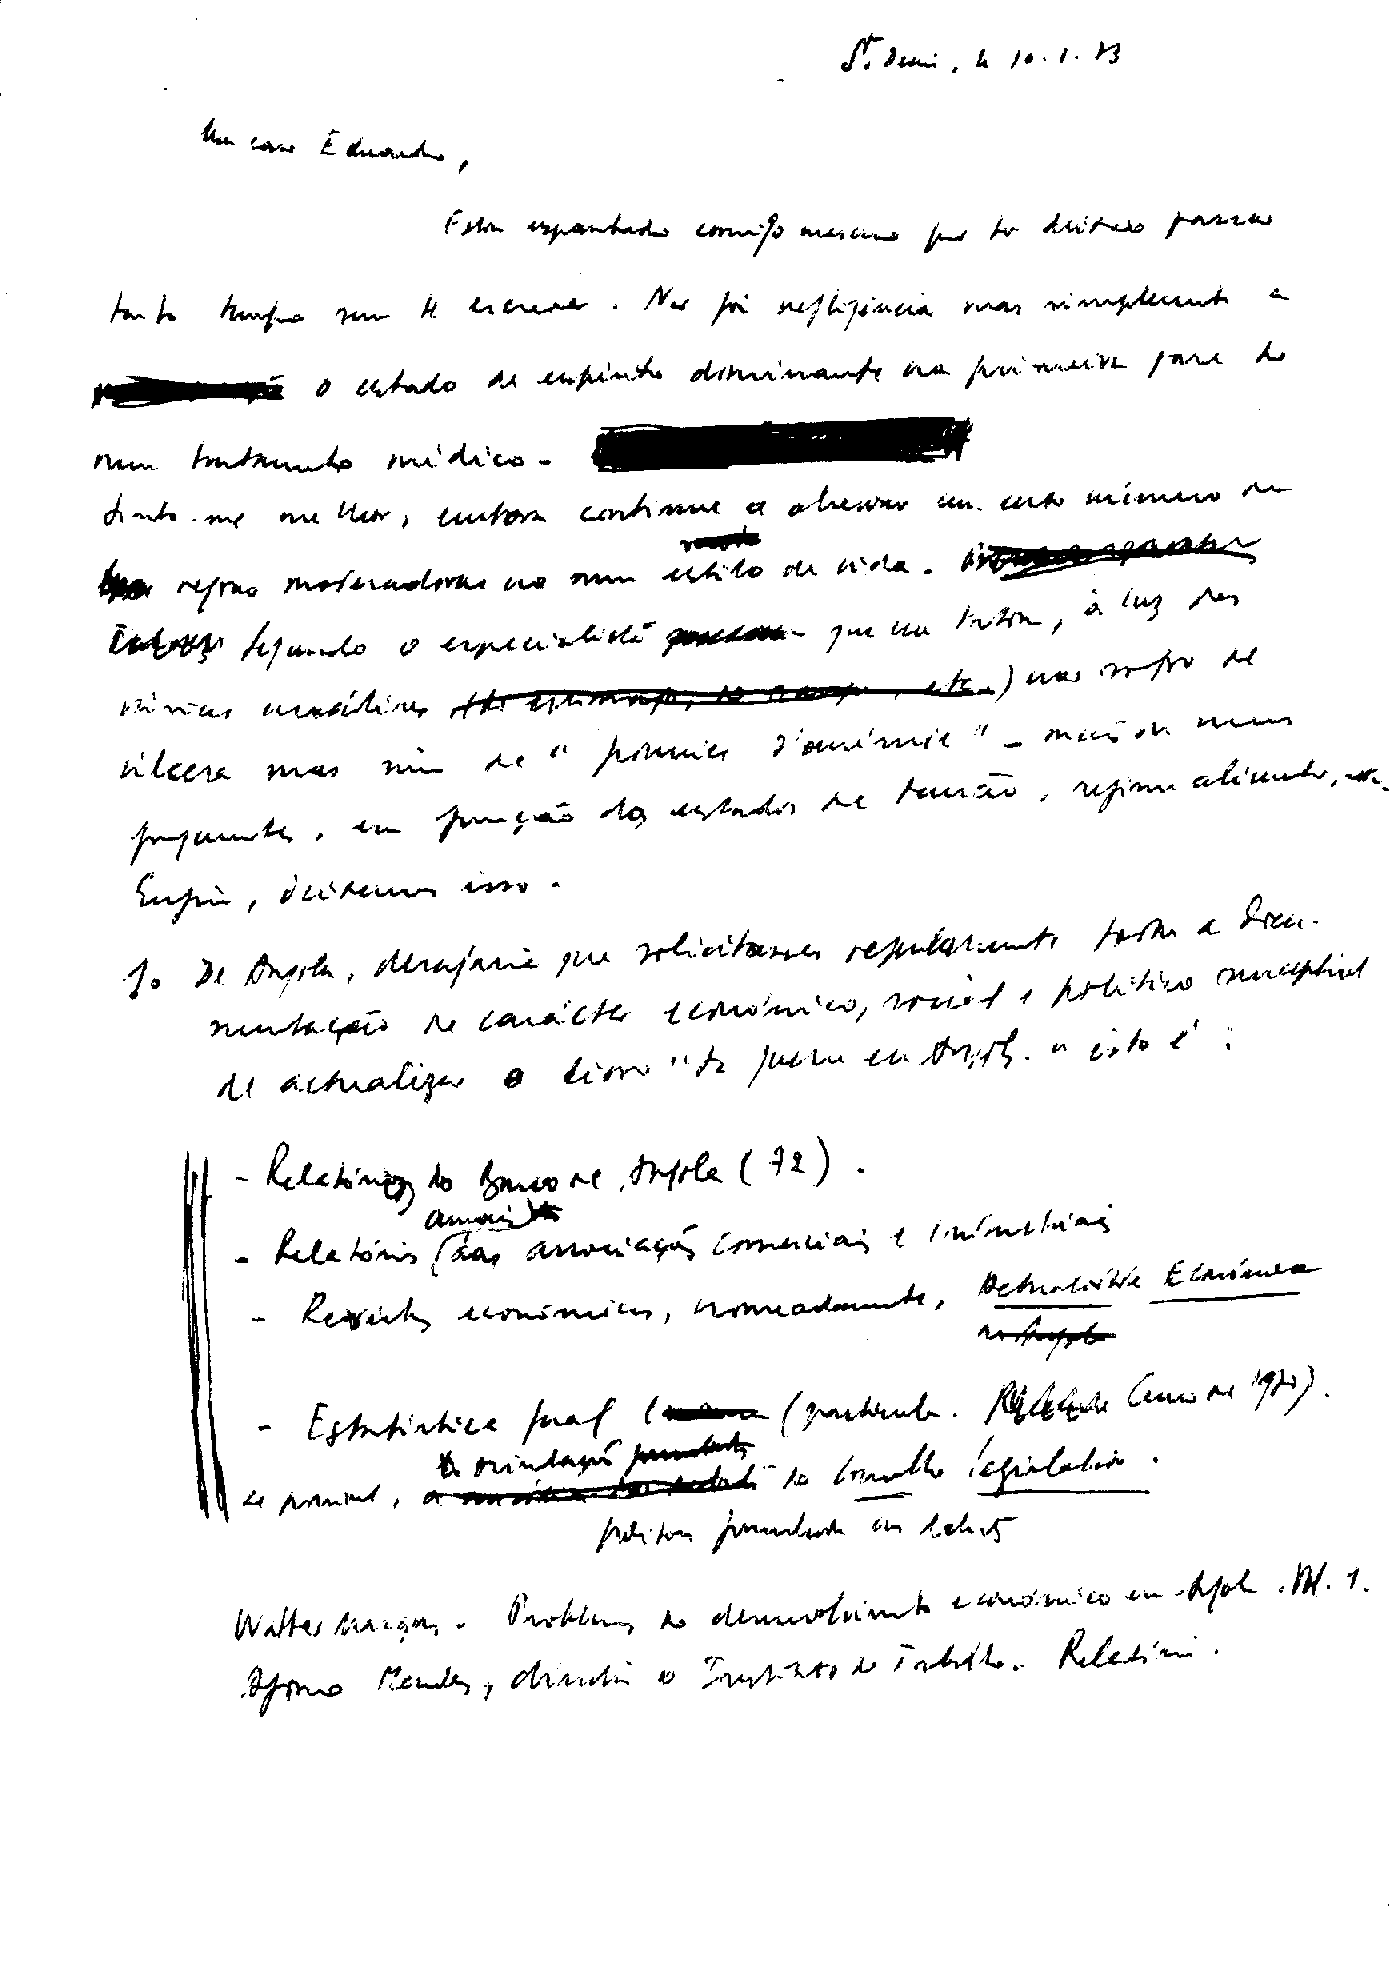 St. Denis, le 10.1.73
Meu caro Eduardo,
Estou espantado comigo mesmo por ter deixado passar
tanto tempo sem te escrever. Não foi negligência mas simplesmente
o estado de espírito dominante na primeira fase do
meu tratamento médico.
Sinto-me melhor, embora continue a observar um certo número de
regras moderadoras no meu estilo de vida.
Segundo o especialista que me trata, à luz das
várias análises não sofro de
úlcera mas sim de "poussées d'anémie" - mais ou menos
frequentes, em função dos estados de tensão, regime alimentar, etc.
Enfim, deixemos isso.
1. De Angola, desejaria que solicitasses regularmente toda a docu-
mentação de carácter económico, social e político susceptível
de actualizar o livro "da guerra em Angola" isto é:
- Relatórios do Banco de Angola (72).
anuais
- Relatórios das associações comerciais e industriais
- Revistas económicas, nomeadamente, Actualidade Económica
- Estatística geral (particular. Censo de 1970).
se possível, a orientação do Conselho Legislativo.
política formulada em debates
Walter Marques. Problemas do desenvolvimento económico em Angola. Vol. 1.
Afonso Mendes, director o Instituto do Trabalho. Relatório.